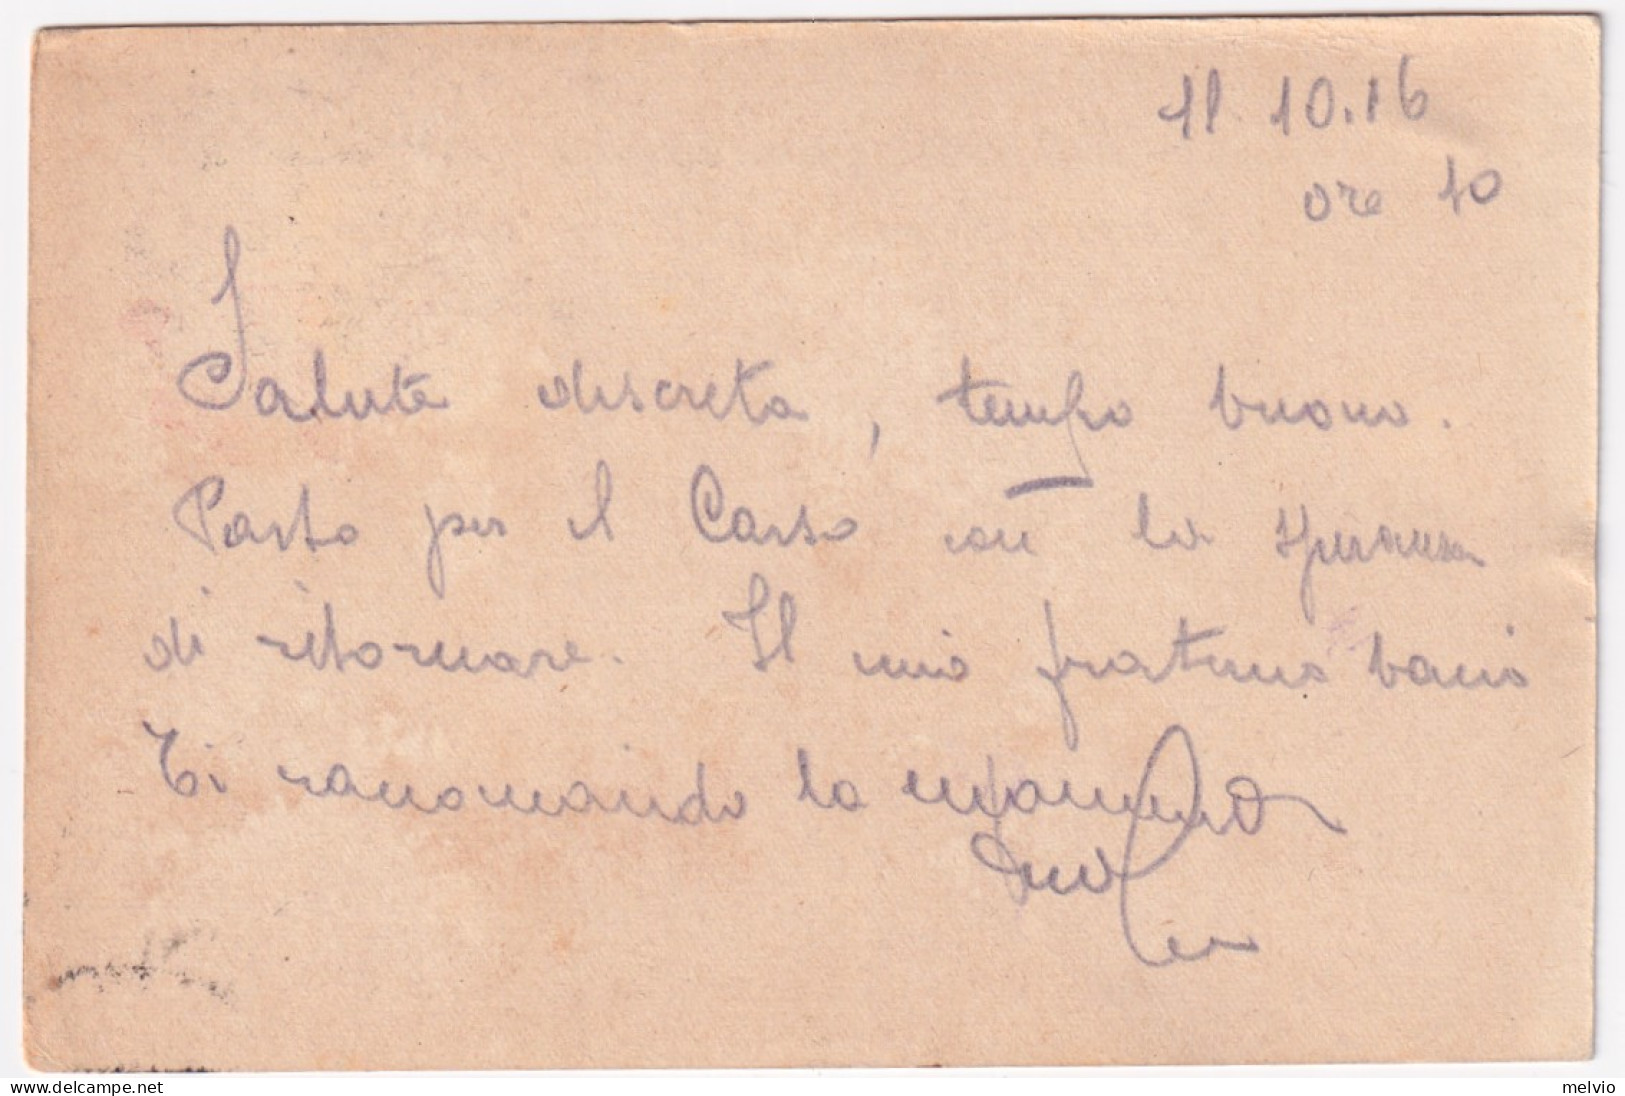 11 10.16
ore 10
Salute discreta, tempo buono.
Parto per il Carso con la speranza
di ritornare. Il mio fraterno bacio
Ti raccomando la mamma
www.delcampe.net
melvio